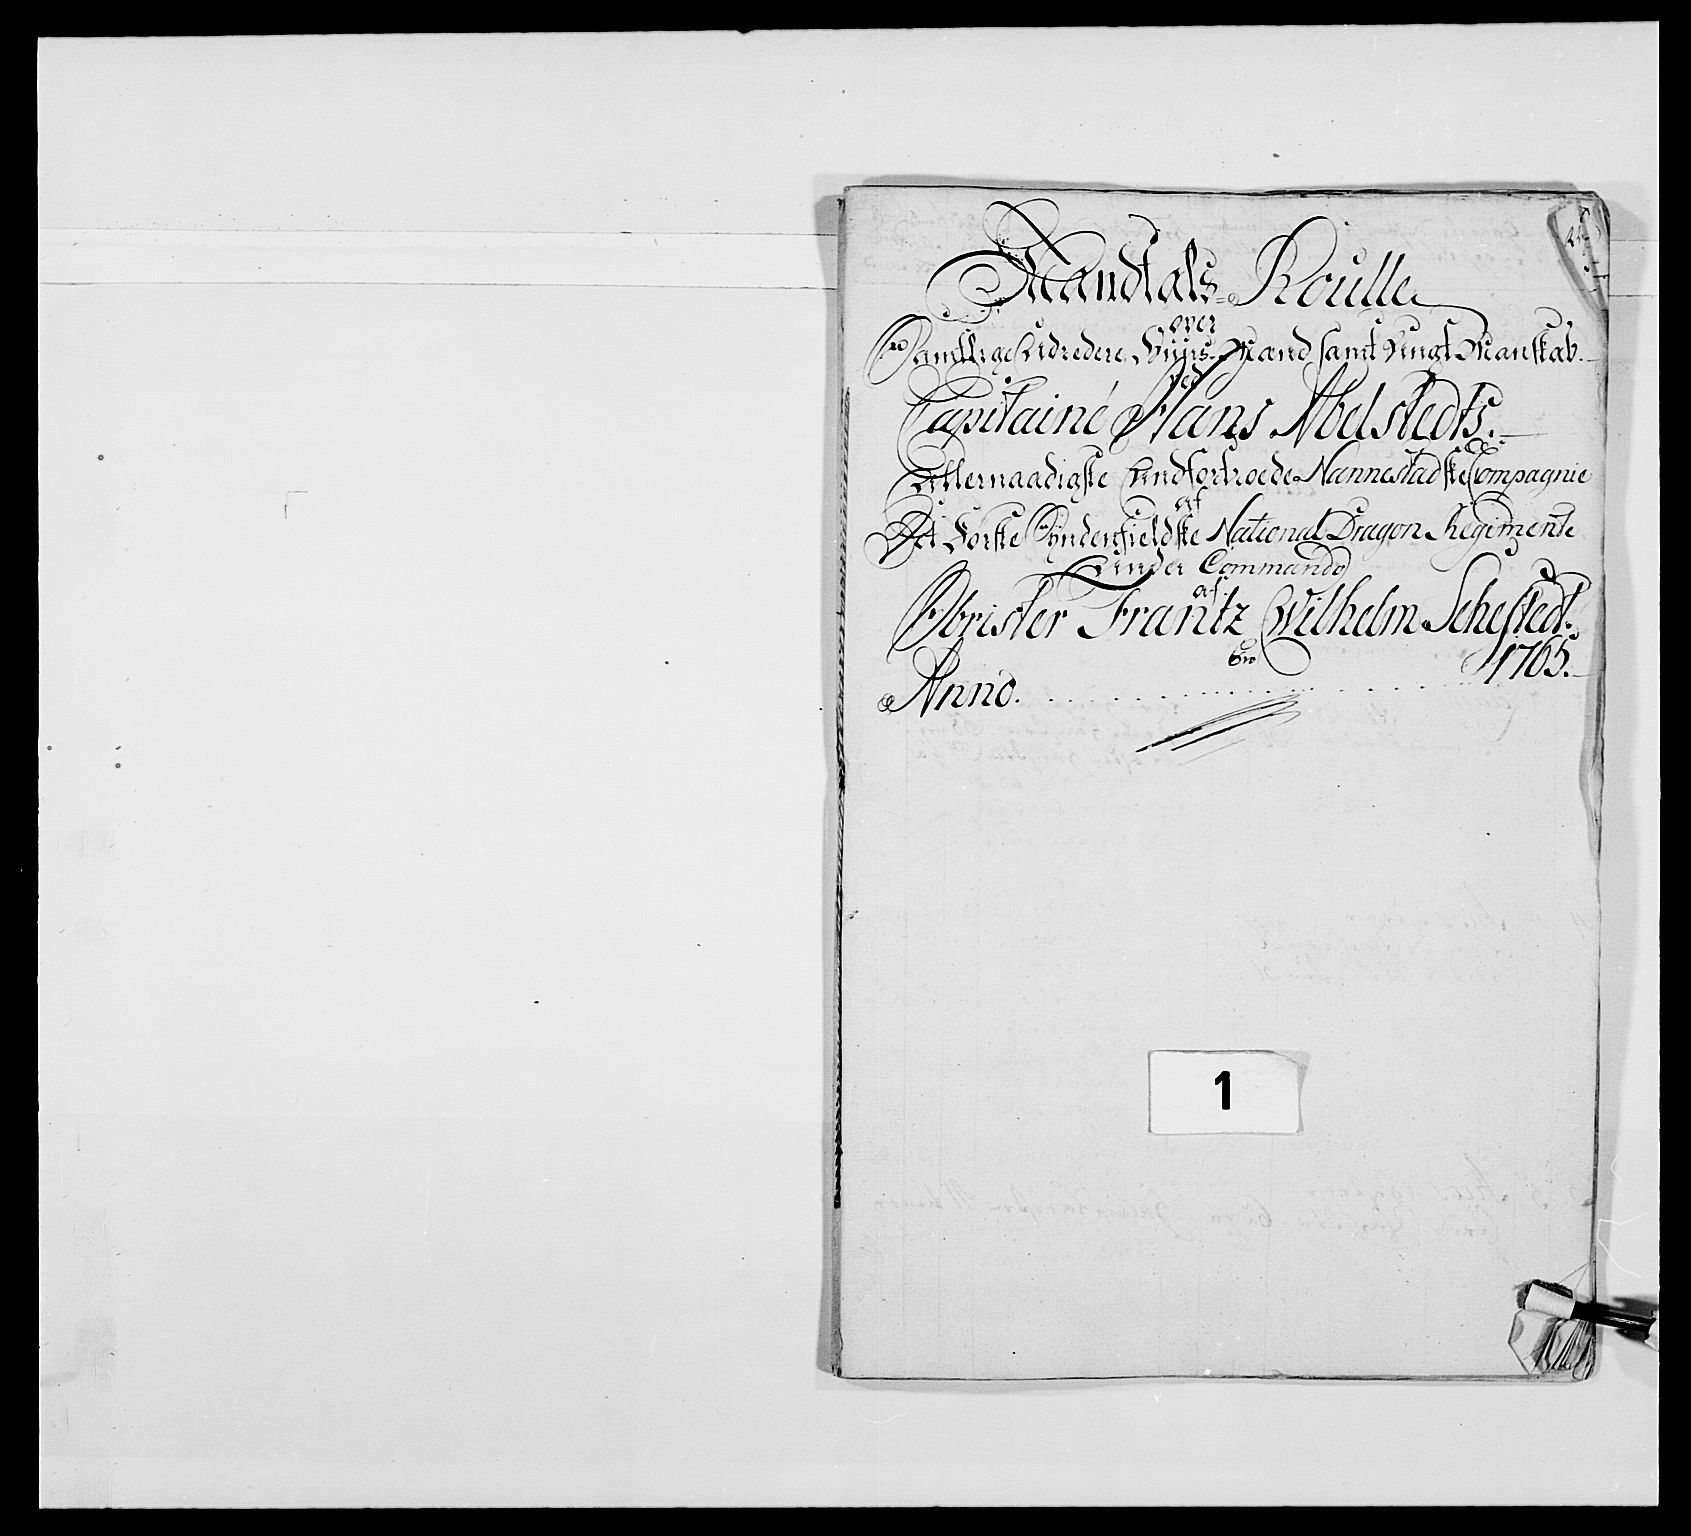 Mandtals-Roulle
over
Samtlige Udredere, Huus-Mænd samt Ungt Mandskab.
ved
Capitaine Hans Abelstedts.
Allernaadigste Andfortroede Nannestadske Compagnie
af
Det Første Synderfieldske National Dragon Regimente
Under Commando
af
Obrister Frantz Wilhelm Sehestedt.
pro
Anno. 1765.
1